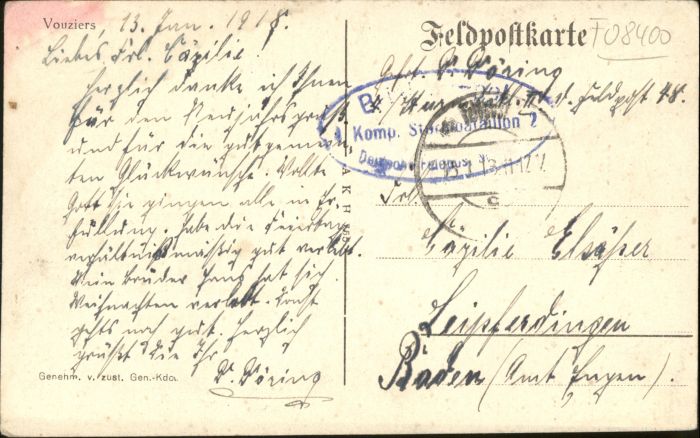 Vouziers, 13. Jan. 1918.
Liebes Frl. Cäzilie!
Herzlich danke ich Ihnen
für den Neujahrsgruß
und für die gutgemein-
ten Glückwünsche. Wollte
Gott sie gingen alle in Er-
füllung. Habe die Feiertage
verhältnismäßig gut verlebt.
Mein Bruder Hans hat sich
Weihnachten verlobt. Sonst
gehts noch gut. Herzlich
grüßt Sie Ihr
D. Döring
Genehm. v. zust. Gen.-Kdo.
Feldpostkarte
F08400
D. Döring
Feldpost 48.
Komp. Sturmbataillon 7
Deutsche Feldpost
Frl.
Cäzilie Elsäßer
Leipferdingen
Baden (Amt Engen).